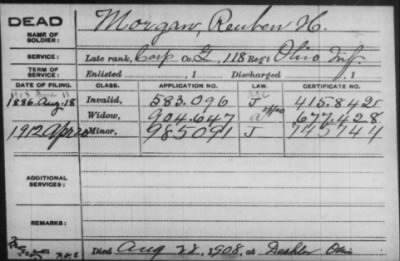 DEAD
NAME OF SOLDIER:
Morgan, Reuben H.
SERVICE:
Late rank, Corp Co. G, 118 Reg't Ohio Inf.
TERM OF SERVICE:
Enlisted , 1
Discharged , 1
DATE OF FILING. CLASS. APPLICATION NO. LAW. CERTIFICATE NO.
1886 Aug. 18 Invalid, 583.096 J 415.842
Widow, 904.647 677.428
1912 Apr Minor, 985091 J
ADDITIONAL SERVICES:
REMARKS:
Died Aug 22, 1908, at Deshler Ohio